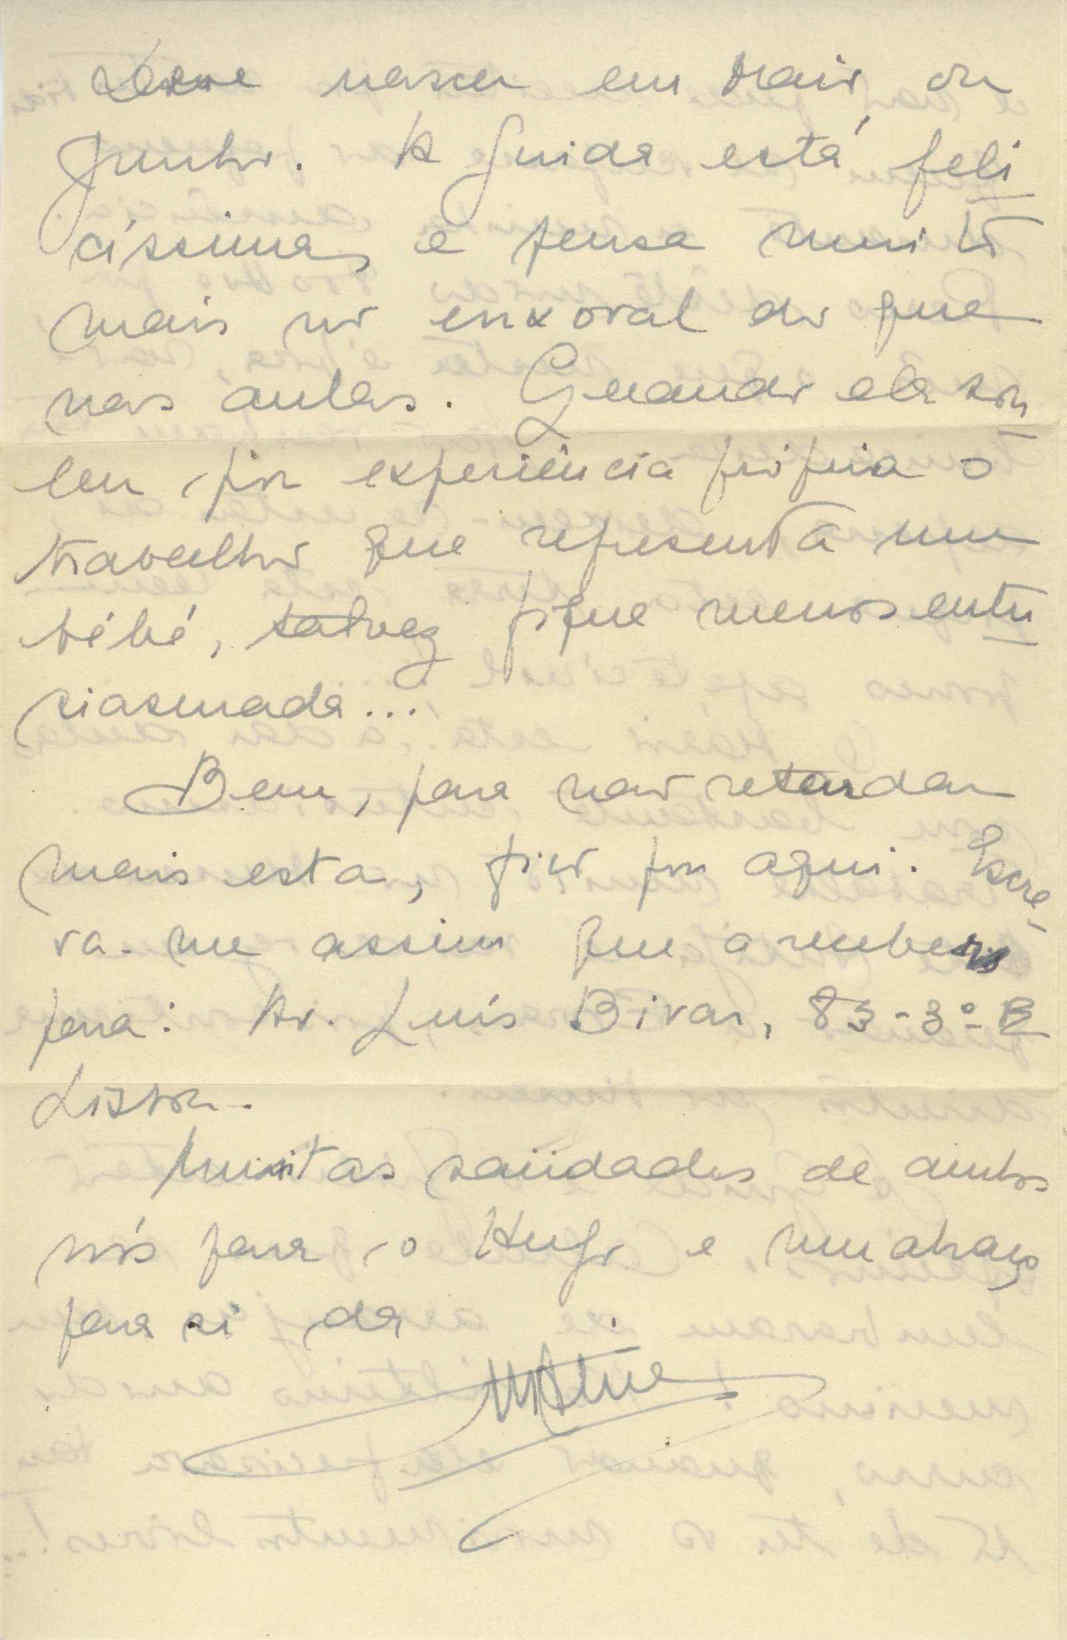 Deve nascer em Maio ou
Junho. A Guida está feli
císsima, e pensa muito
mais no enxoval do que
nas aulas. Quando ela sou
ber por experiência própria o
trabalho que representa um
bébé, talvez fique menos entu
siasmada...
Bem, para não retardar
mais esta, fico por aqui. Escre-
va-me assim que a receber
para: Av. Luís Bivar, 83-3º-E
Lisboa.
Muitas saüdades de ambos
nós para o Hugo e um abraço
para si da